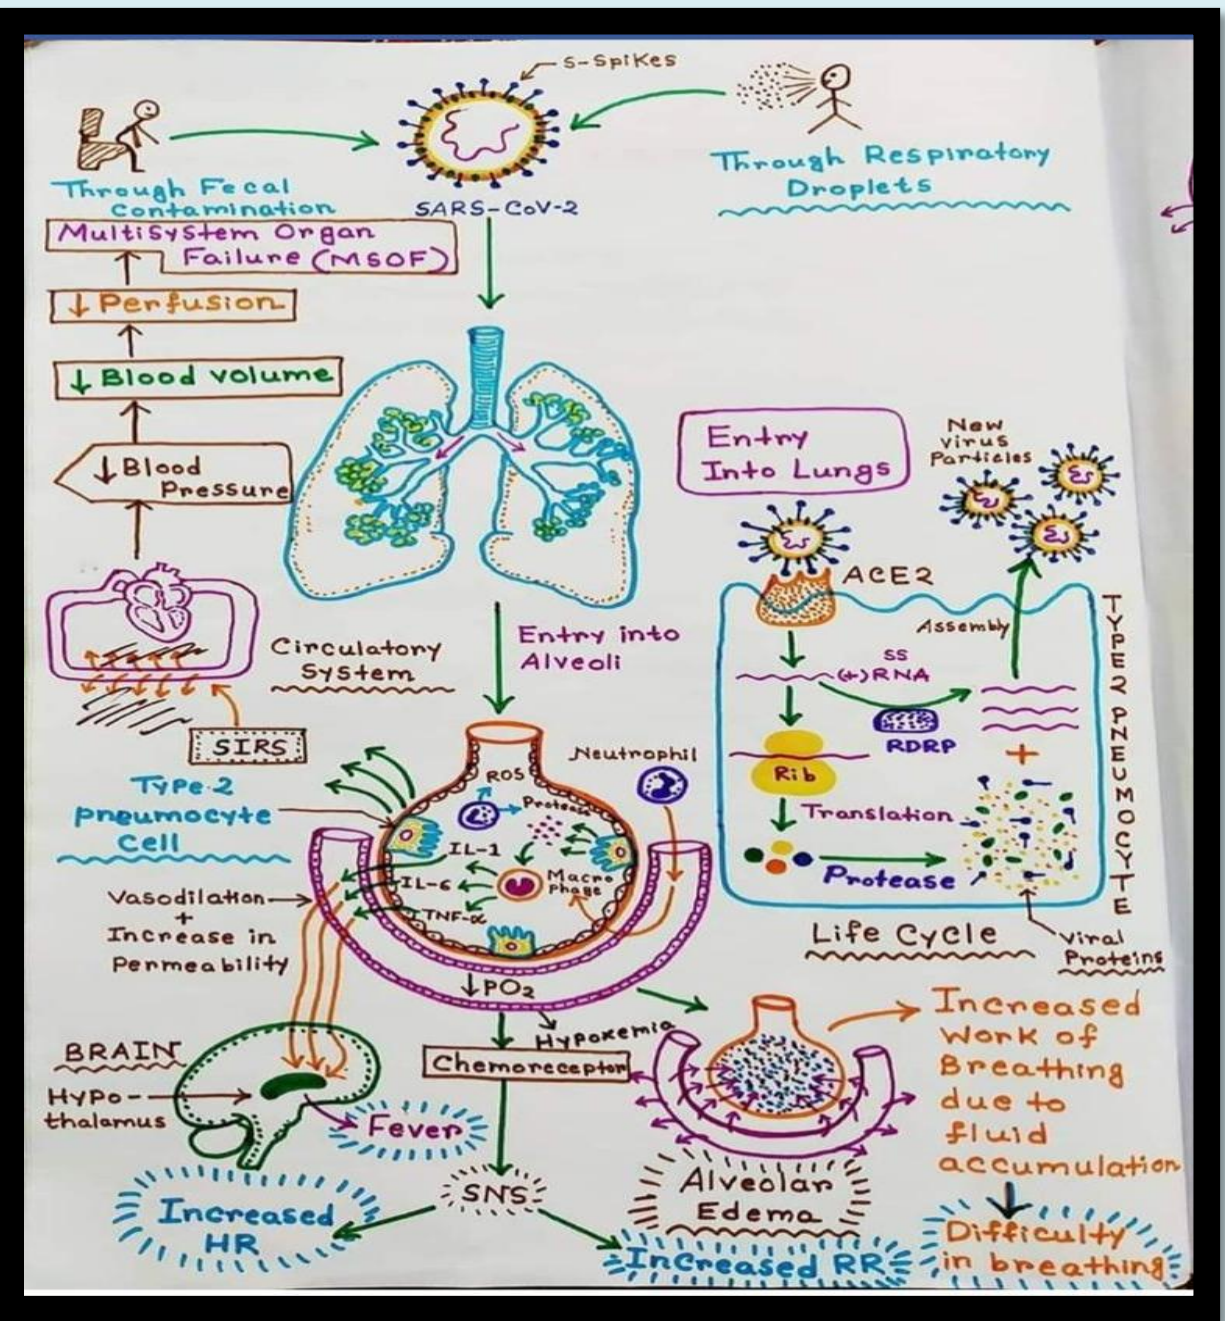 S-Spikes
Through Fecal
Contamination
SARS-CoV-2
Through Respiratory
Droplets
Multisystem Organ
Failure (MSOF)
↓ Perfusion
↓ Blood volume
↓ Blood
Pressure
Circulatory
System
SIRS
Entry into
Alveoli
Entry
Into Lungs
New
virus
Particles
ACE2
Assembly
SS
(+)RNA
RDRP
Rib
Translation
Protease
+
Viral
Proteins
Life Cycle
TYPE2 PNEUMOCYTE
Type-2
pneumocyte
Cell
Neutrophil
ROS
Protease
IL-1
IL-6
TNF-α
Macro
phage
Vasodilation
+
Increase in
Permeability
↓PO2
Hypoxemia
Chemoreceptor
BRAIN
Hypo-
thalamus
Fever
SNS
Increased
HR
Increased RR
Alveolar
Edema
Increased
work of
Breathing
due to
fluid
accumulation
Difficulty
in breathing